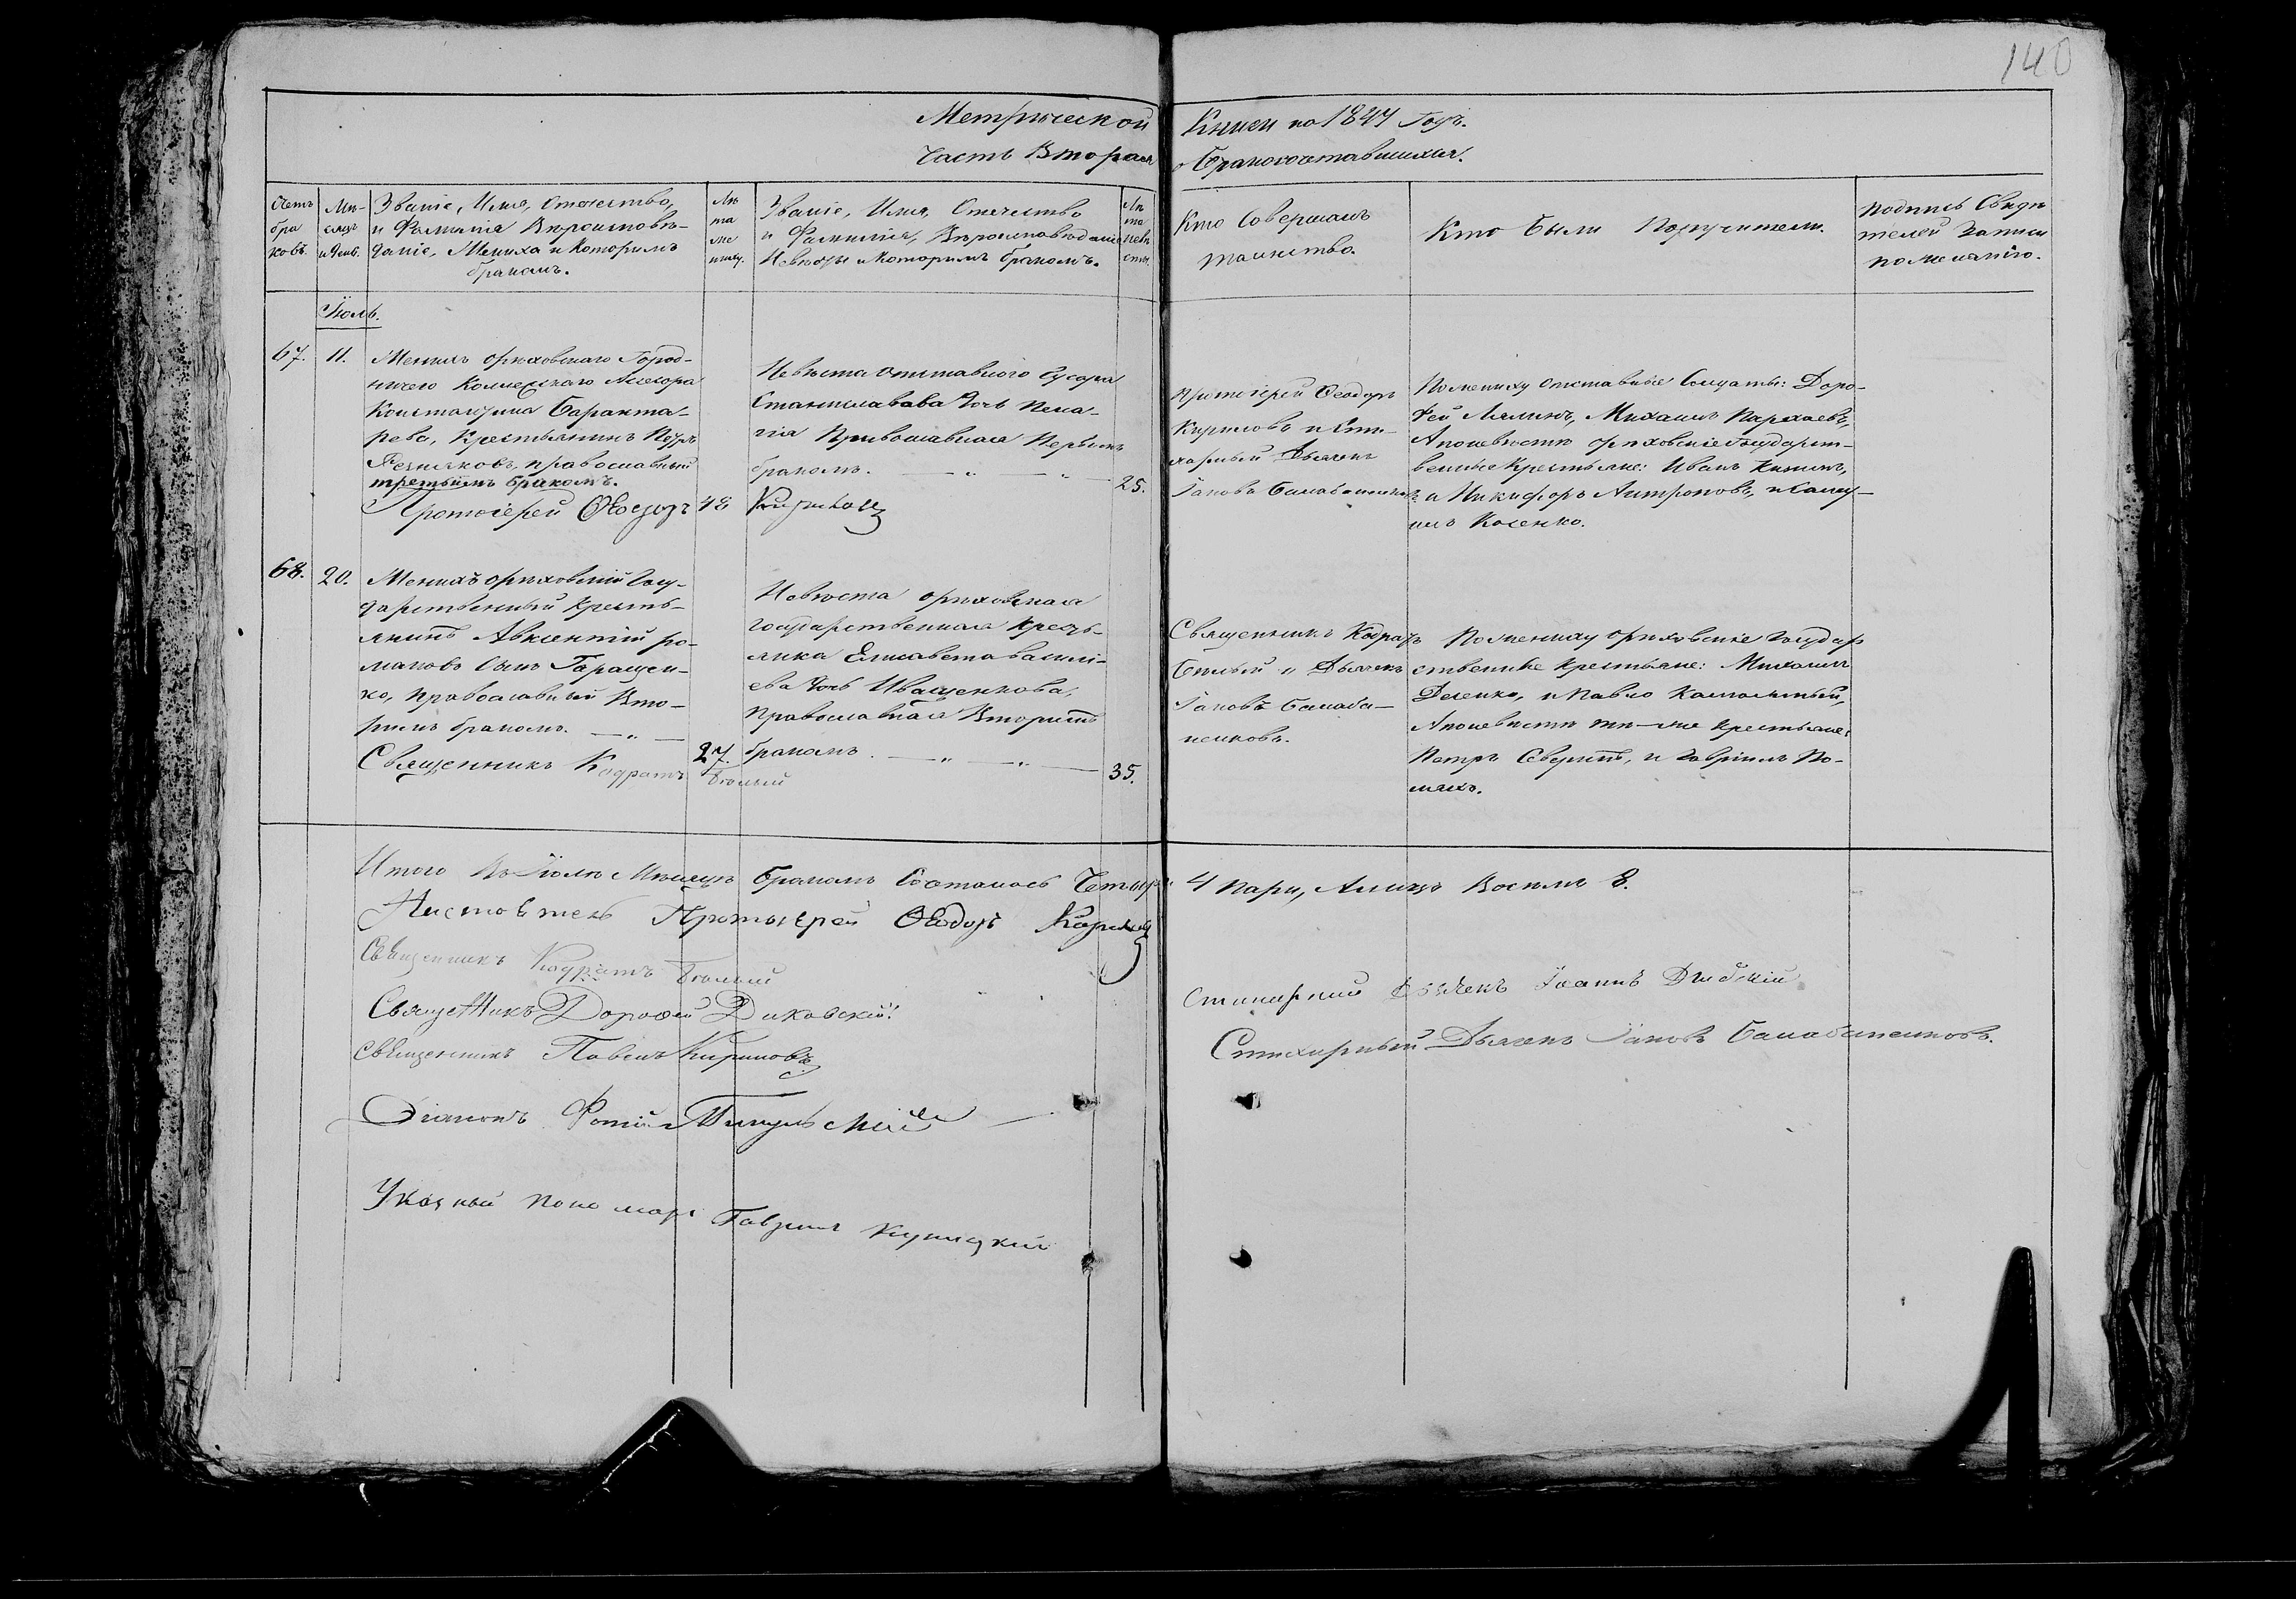 140
Метрической Книги на 1847 Годъ.
Часть Вторая о бракосочетавшихся.
Счетъ
бра
ковъ.
Мѣ-
сяцъ
и День.
Званіе, Имя, Отчество,
и Фамилія Вѣроисповѣ-
даніе, Жениха и Которимъ
бракомъ.
Лѣ
та
же
ниху.
Званіе, Имя, Отчество
и Фамилія, Вѣроисповѣданіе
Невѣсты и Которимъ бракомъ.
Лѣ
та
невѣ
сты.
Кто Совершалъ
таинство.
Кто были Поручители.
Подпись Свидѣ
телей Записи
по желанію.
Іюль.
67.
11.
Женихъ орѣховскаго Город-
ничего Коллежскаго Асесора
Константина Баракта-
рева, Крестьянинъ Петръ
православный
третьимъ бракомъ.
48
Невѣста отставного
Станислава Дочь Пела-
гія Православная Первымъ
бракомъ.
25.
Протоіерей Ѳеодоръ Кириловъ
Протоіерей Ѳеодоръ
Кириловъ и Сти-
харный Дьячекъ
Іаковъ
По жениху отставные Солдаты: Доро-
фей Лялинъ, Михаилъ
А по невѣсте орѣховскіе Государст-
венные Крестьяне: Иванъ
и Никифоръ Антроповъ, и Саму-
илъ Косенко.
68.
20.
Женихъ орѣховскій Госу-
дарственный Кресть-
янинъ Авксентій ро-
мановъ Сынъ Геращен-
ко, православный Вто-
римъ бракомъ.
27.
Невѣста орѣховская
государственная Кресть-
янка Елисавета василі-
ева Дочь Иващенкова,
православная Вторимъ
бракомъ.
35.
Священникъ Кодратъ Бѣлый
Священникъ Кодратъ
Бѣлый и Дьячекъ
Іаковъ Балаба-
ненковъ.
По жениху орѣховскіе Государ
ственные Крестьяне: Михаилъ
Деленко, и Павло
А по невисти ти-же Крестьяне:
Петръ Сверитъ, и Гавріилъ По-
ляхъ.
Итого Въ Іюлѣ Мѣсяцѣ браковъ Состоялось Четыре 4 Пари, А лицъ Восемъ 8.
Настоятель Протоіерей Ѳеодоръ Кириловъ
Священникъ Кодратъ Бѣлый
Священникъ Дорофей Диковскій.
Священникъ Павелъ Кириловъ
Діаконъ Фотій
Указный пономарь Гавріилъ Куницкій
Стихарний Дьячекъ Іоаннъ
Стихарный Дьячекъ Іаковъ Балабаненковъ.